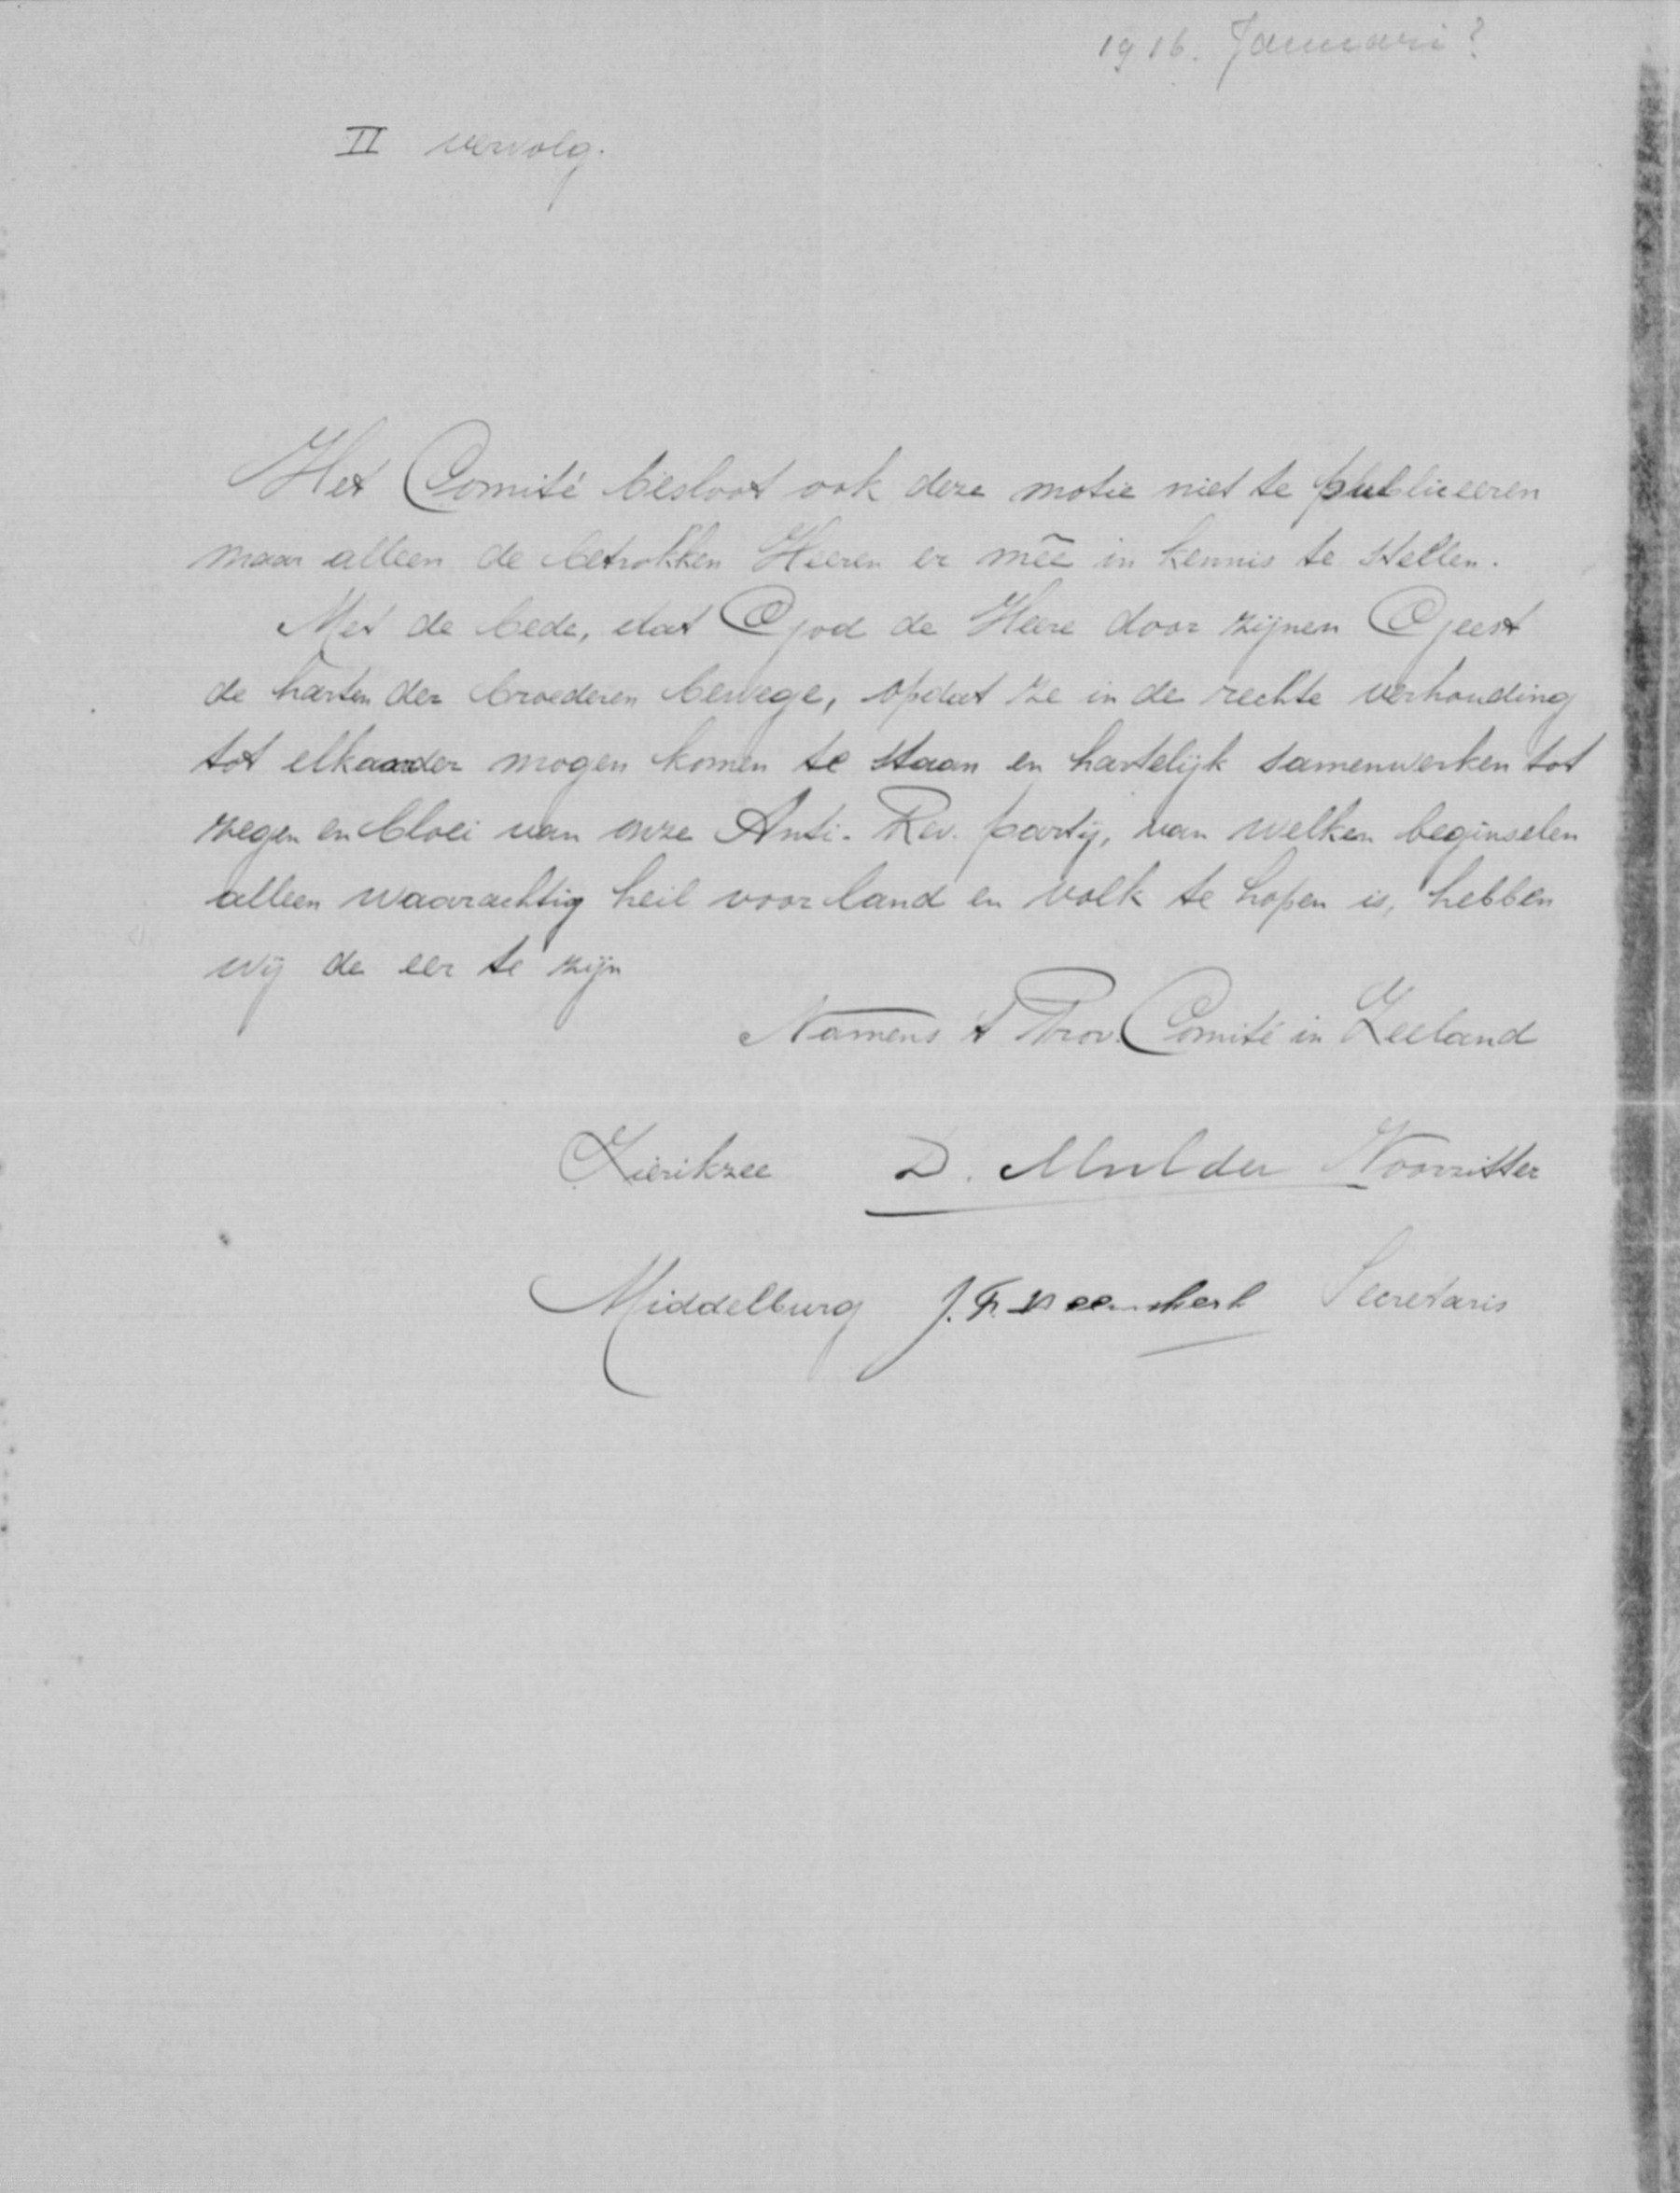 1916. Januari?
II vervolg.
Het Comité besloot ook deze motie niet te publiceeren
maar alleen de betrokken Heeren er meê in kennis te stellen.
Met de bede, dat God de Heere door zijnen Geest
de harten der broederen bewege, opdat ze in de rechte verhouding
tot elkaander mogen komen te staan en hartelijk samenwerken tot
zegen en bloei van onze Anti-Rev. partij, van welken beginselen
alleen waarachtig heil voor land en volk te hopen is, hebben
wij de eer te zijn
Namens 't Prov. Comité in Zeeland
Zierikzee D. Mulder Voorzitter
Middelburg J. Secretaris